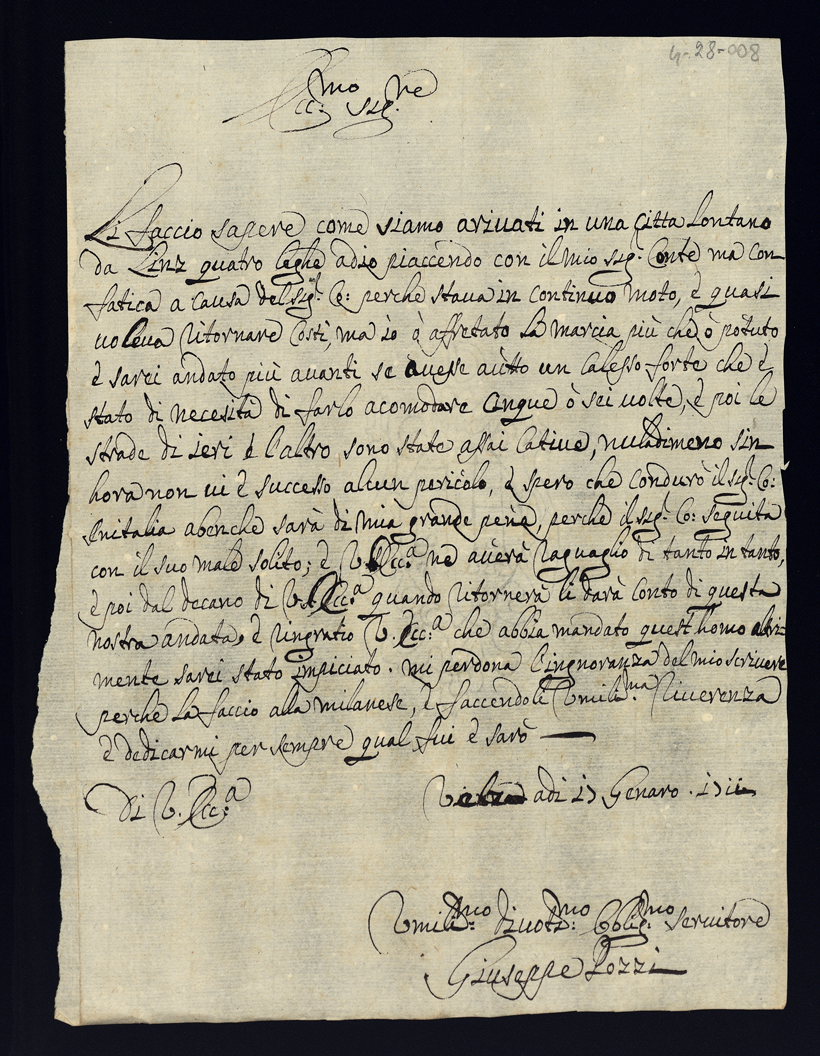 4-28-008
Ecc:mo Sig:re
Li faccio sapere come siamo arivati in una Citta Lontano
da Linz quatro leghe adio piaccendo con il mio sig: Conte ma con
fatica a causa del sig: Co: perche staua in continuo moto, è quasi
uoleua Ritornare Costì, ma io ò affretato la marcia più che ò potuto
è sarei andato più auanti se auesse auùto un Calesso forte che è
stato di necesità di farlo acomodare Cinque ò sei uolte, è poi le
strade di ieri è l'altro sono state assai Catiue, nuladimeno sin
hora non ui è successo alcun pericolo, è spero che condurò il sig: Co:
Initalia abenche sarà di mia grande pene, perche il sig: Co: seguita
con il suo male solito; è V. Ecc:a ne auerà raguaglio di tanto in tanto,
è poi dal decano di V. Ecc:a quando Ritornerà li darà Conto di questa
nostra andata, è ringratio V. Ecc:a che abbia mandato quest homo altri
mente sarei stato impiciato. mi perdona l'ingnoranza del mio scriuere
perche la faccio alla milanese, è faccendoli Vmili:ma Riuerenza
è dedicarmi per sempre qual fui è sarò
Di V. Ecc:a
adi 17 Genaro. 1711
Vmili:mo diuoti:mo Obblig:mo seruitore
Giuseppe Pozzi